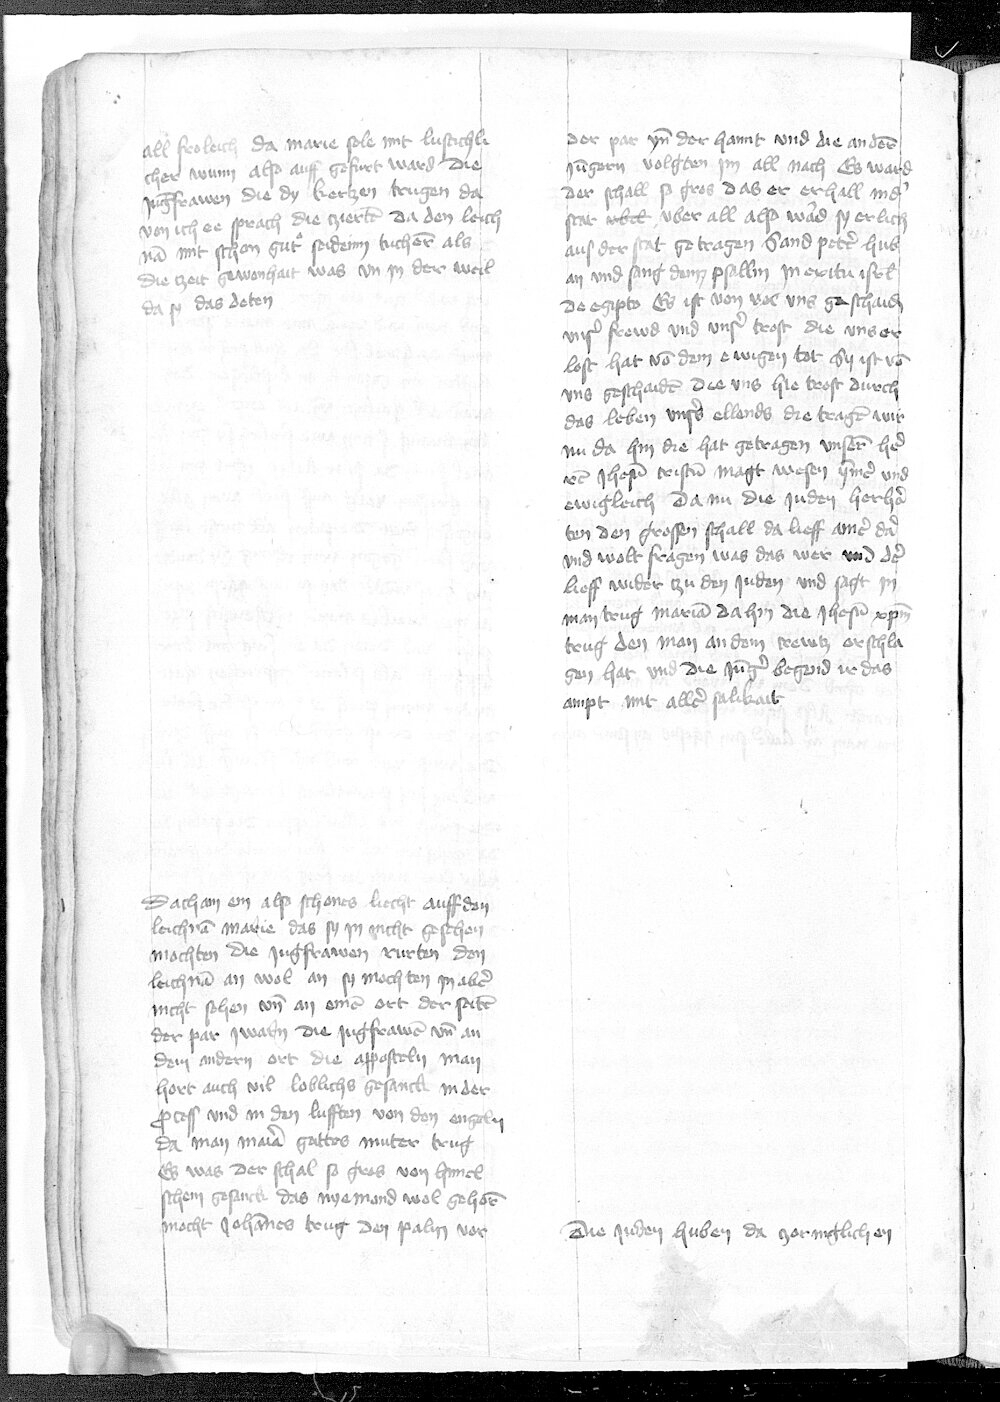 all froleich da marie sele mit lustichli
cher wunn also auff gefurt ward Die
jūgfrawen die dy kertzen trugen da
von ich ee sprach die tziertē da den leich
nā mit schon gutē seideinn tuchērn als
die tzeit gewonhait was vn in der weil
da sy das deten
Da cham ein also schones liecht auff den
leichnā marie das sy in nicht gesehen
mochten die jūgfrawen rurten den
leichnā an wol an sy mochten in abē
nicht sehen vn̄ an einē ort der seitē
der par warn die jūgfrawē vn̄ an
dem andern ort die apposteln man
hort auch vil loblichs gesanck in der
process vnd in den lufften von den engeln
da man mariā gottes muter trug
Es was der schal so gros von himel
schem gesanck das nyemand wol gehorē
mocht Johānes trug den palm vor
der par yn̄ der hannt vnd die anderē
jūgern volgten im all nach Es ward
der schall so gros das er erhall in dʼ
stat vber all also wād sy erlich
aus der stat getragen Sand petē hub
an vnd sang denn psallm in exitu isrl
de egipto Es ist von vol vns geschaidn
vnsʼ frewd vnd vnsʼ trost die vns er
lost hat vō dem ewigen tot Sy ist vō
vns geschaidē die vns hie trost durch
das leben vnsʼs ellends die tragē wir
nu da hin die hat getragen vnserē hē
rē Jhesū cristū magt wesen ymē vnd
ewigleich Da nu die juden herhō
ten den grossen schall da lieff ainē dā
vnd wolt fragen was das wer vnd dē
lieff wider tzu den juden vnd sagt in
man trug mariā da hin die Jhesū xp̄m
trug den man an dem crewtz erschla
gen hat vnd die jūgʼ begend ir das
ampt mit allē salikait
Die juden huben da zorniglichen